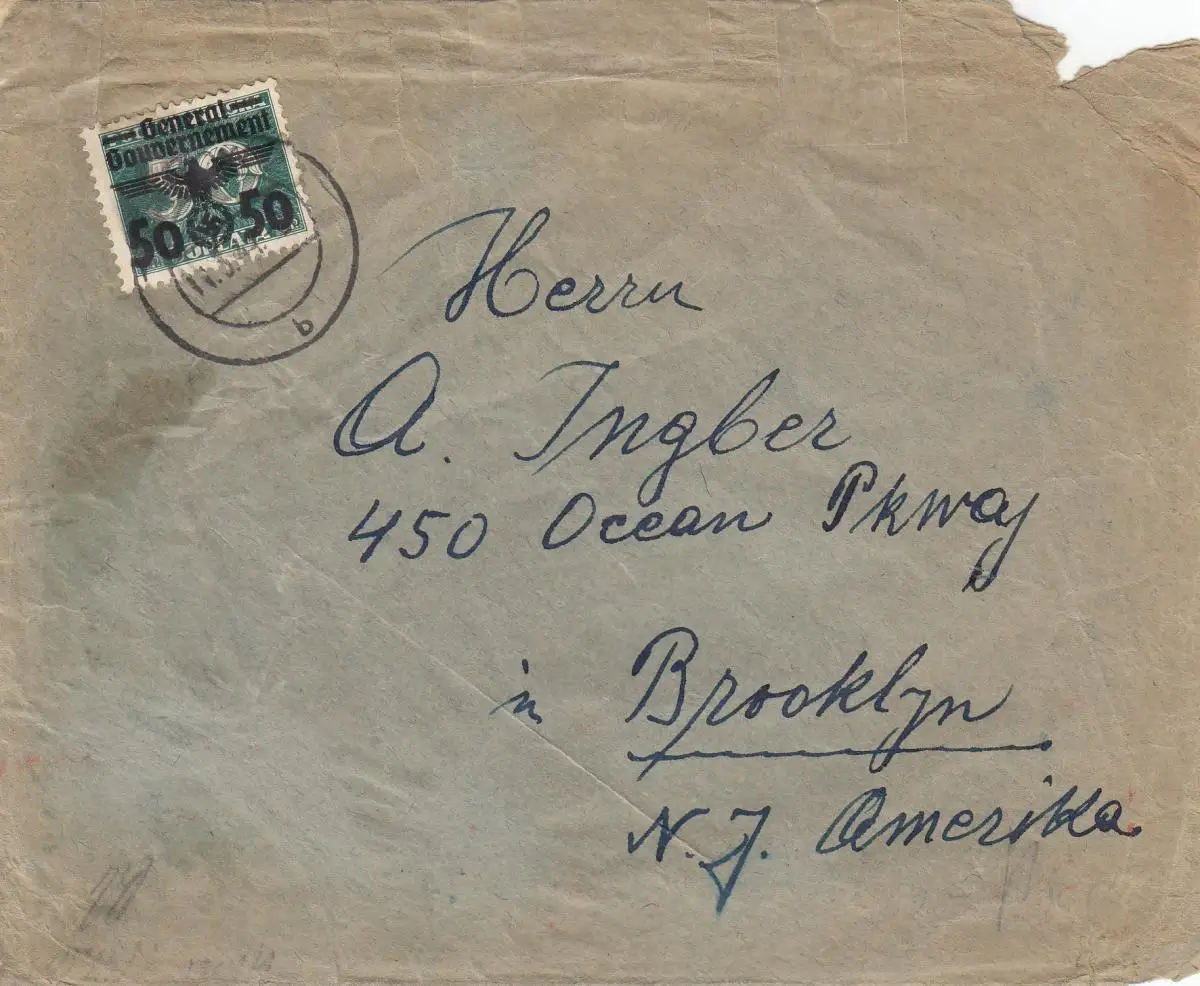 General
Gouvernement
50 50
b
Herrn
A. Ingber
450 Ocean Pkway
in Brooklyn
N. J. Amerika